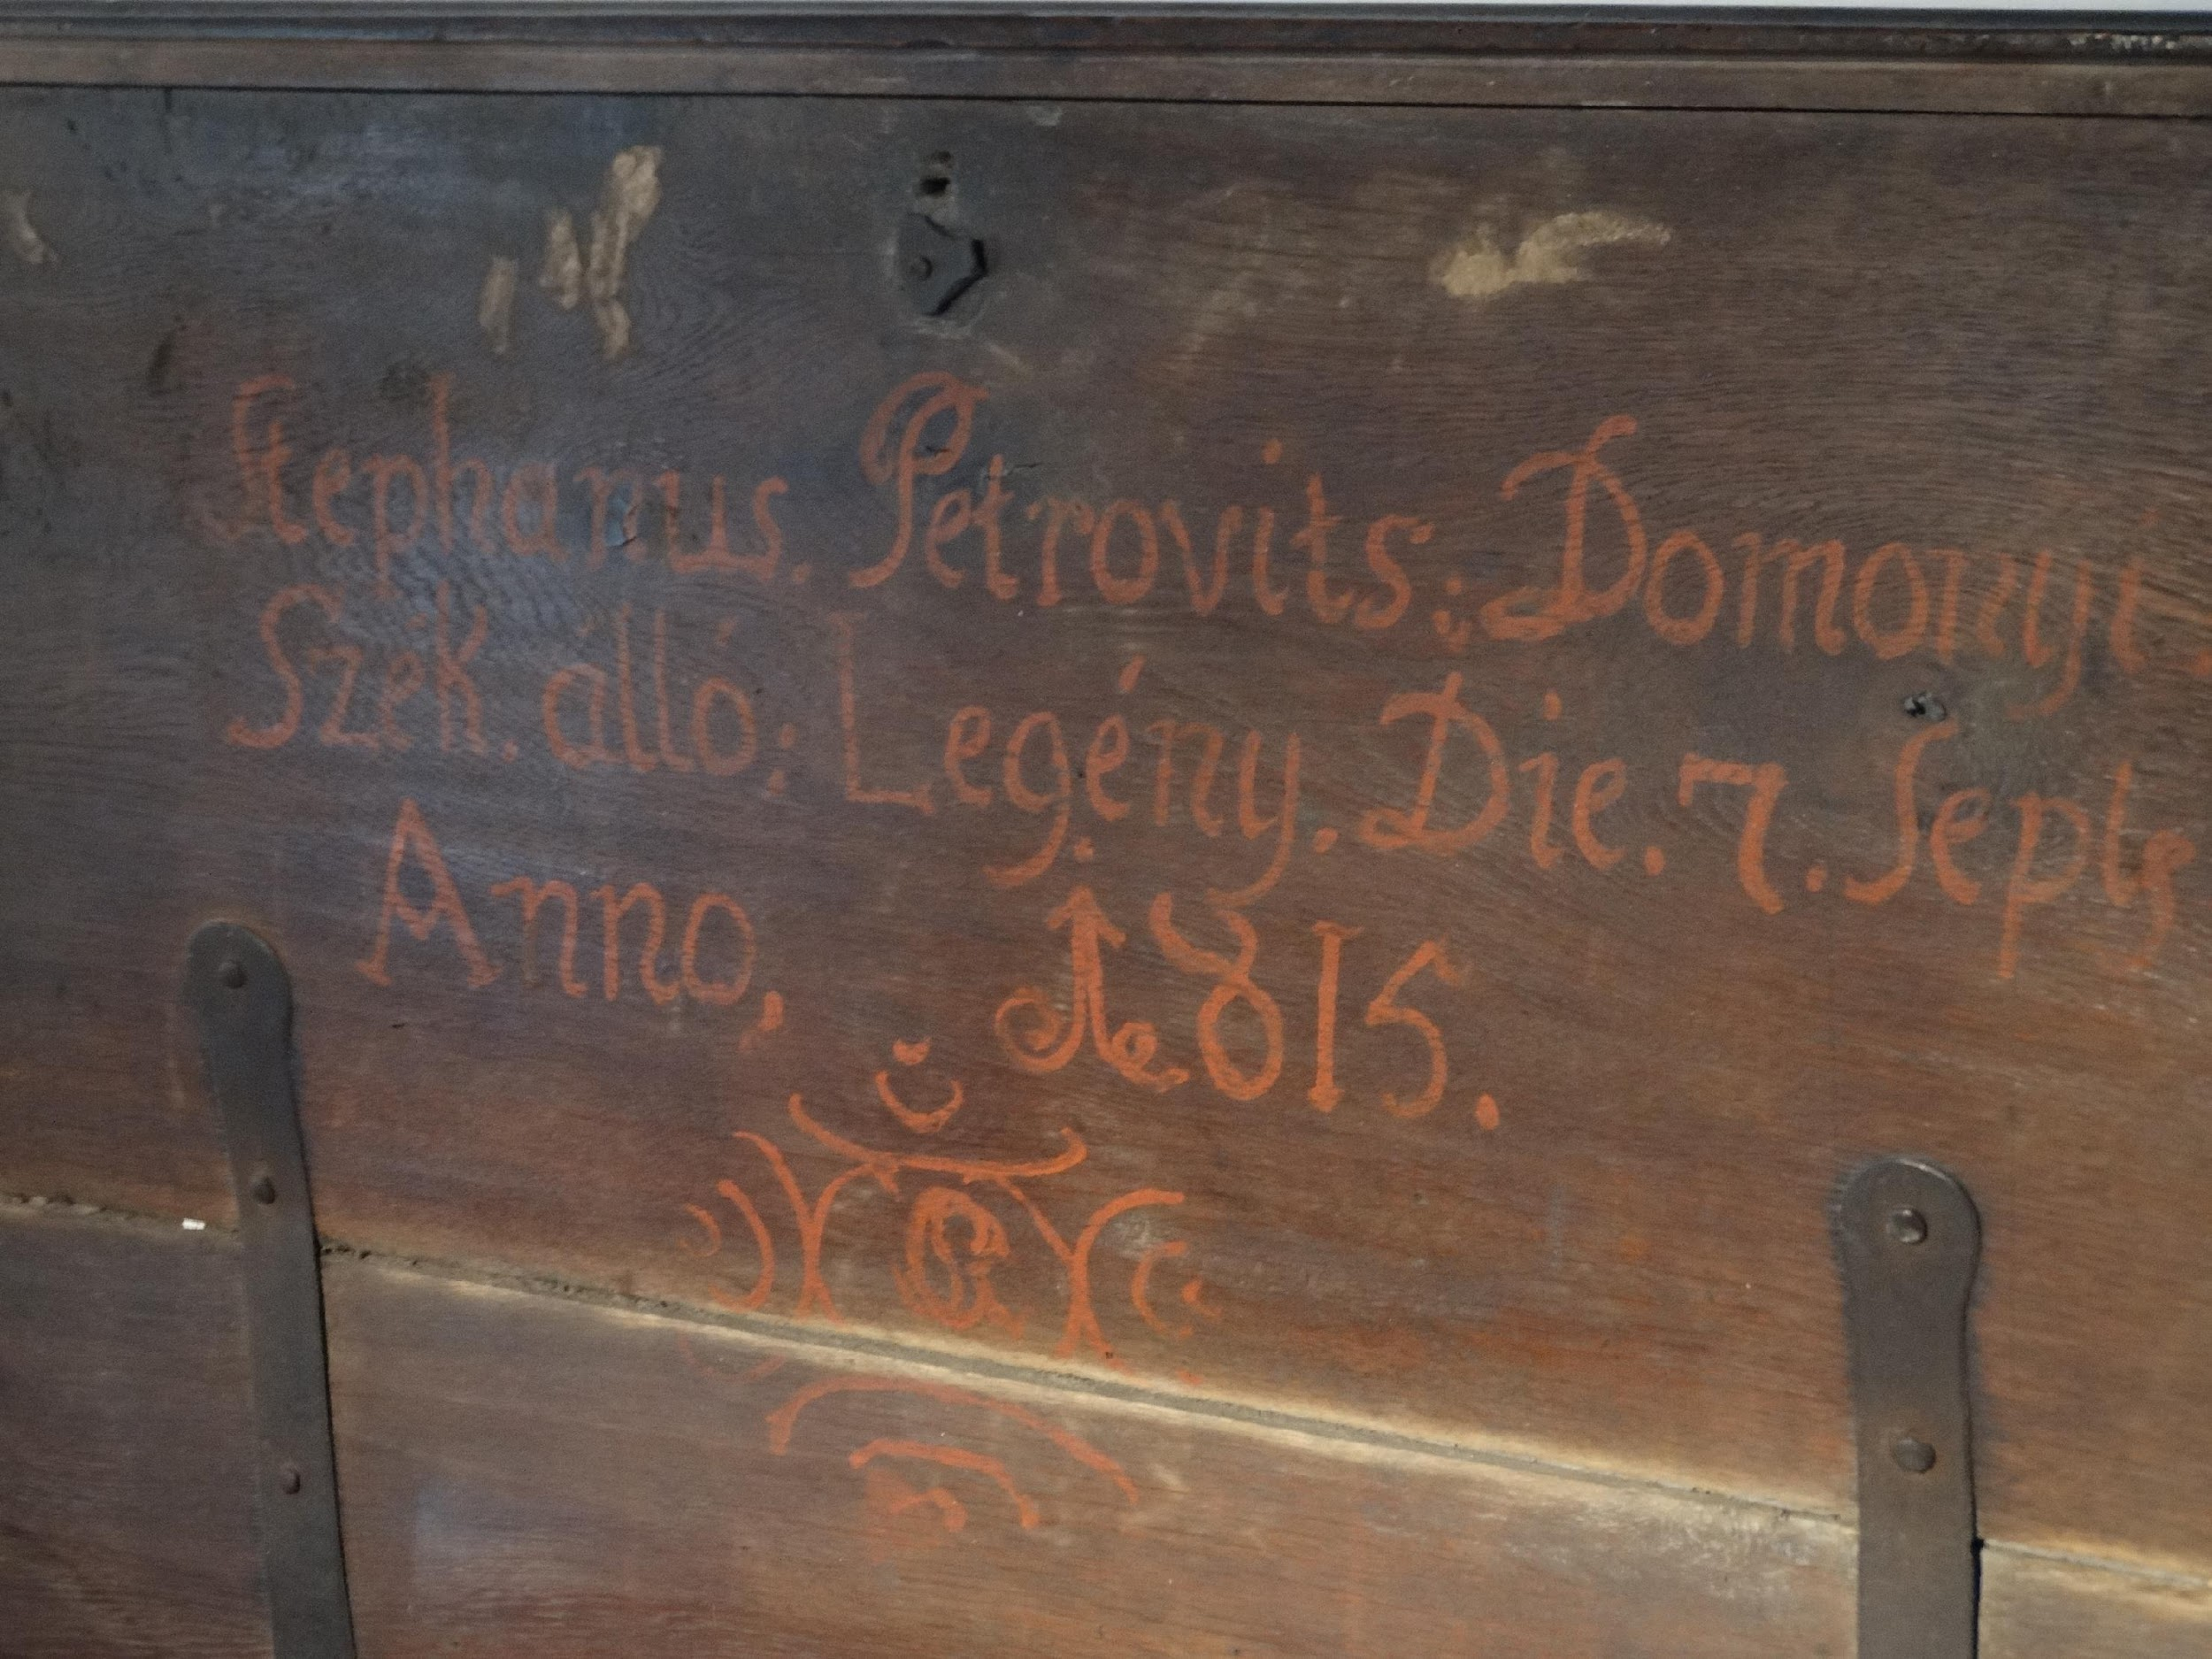 Stephanus. Petrovits: Domonyi.
Szék. álló: Legény. Die. 7. Septs
Anno, 1815.